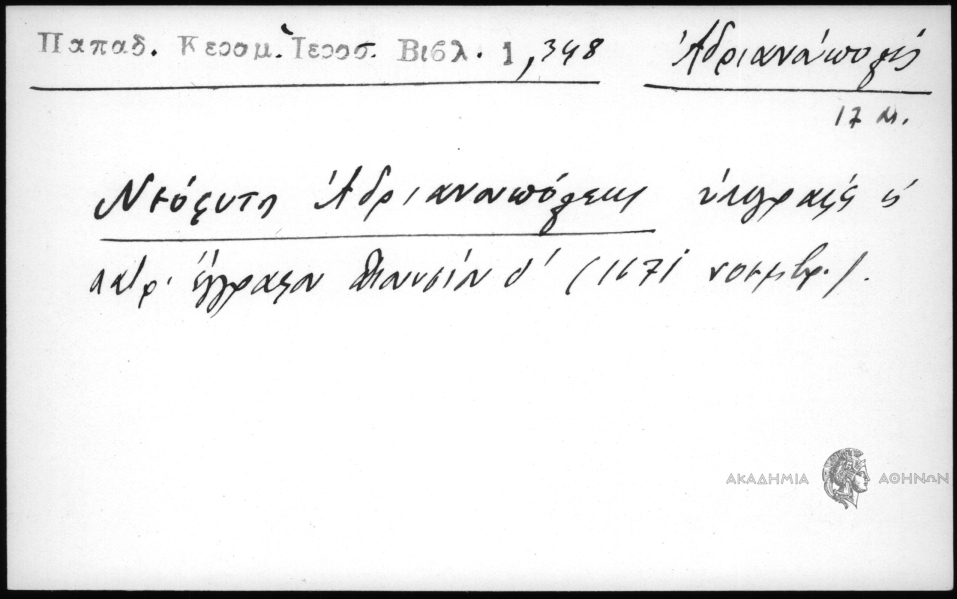 Παπαδ. Κερσμ. Ἱεροσ. Βιβλ. 1, 348
Ἀδριανούπολις
17 αι.
Νεόφυτος Ἀδριανουπόλεως ὑπογραφή εἰς
πατρ. ἔγγραφον Διονυσίου δ΄ (1671 νοεμβρ.).
ΑΚΑΔΗΜΙΑ ΑΘΗΝΩΝ